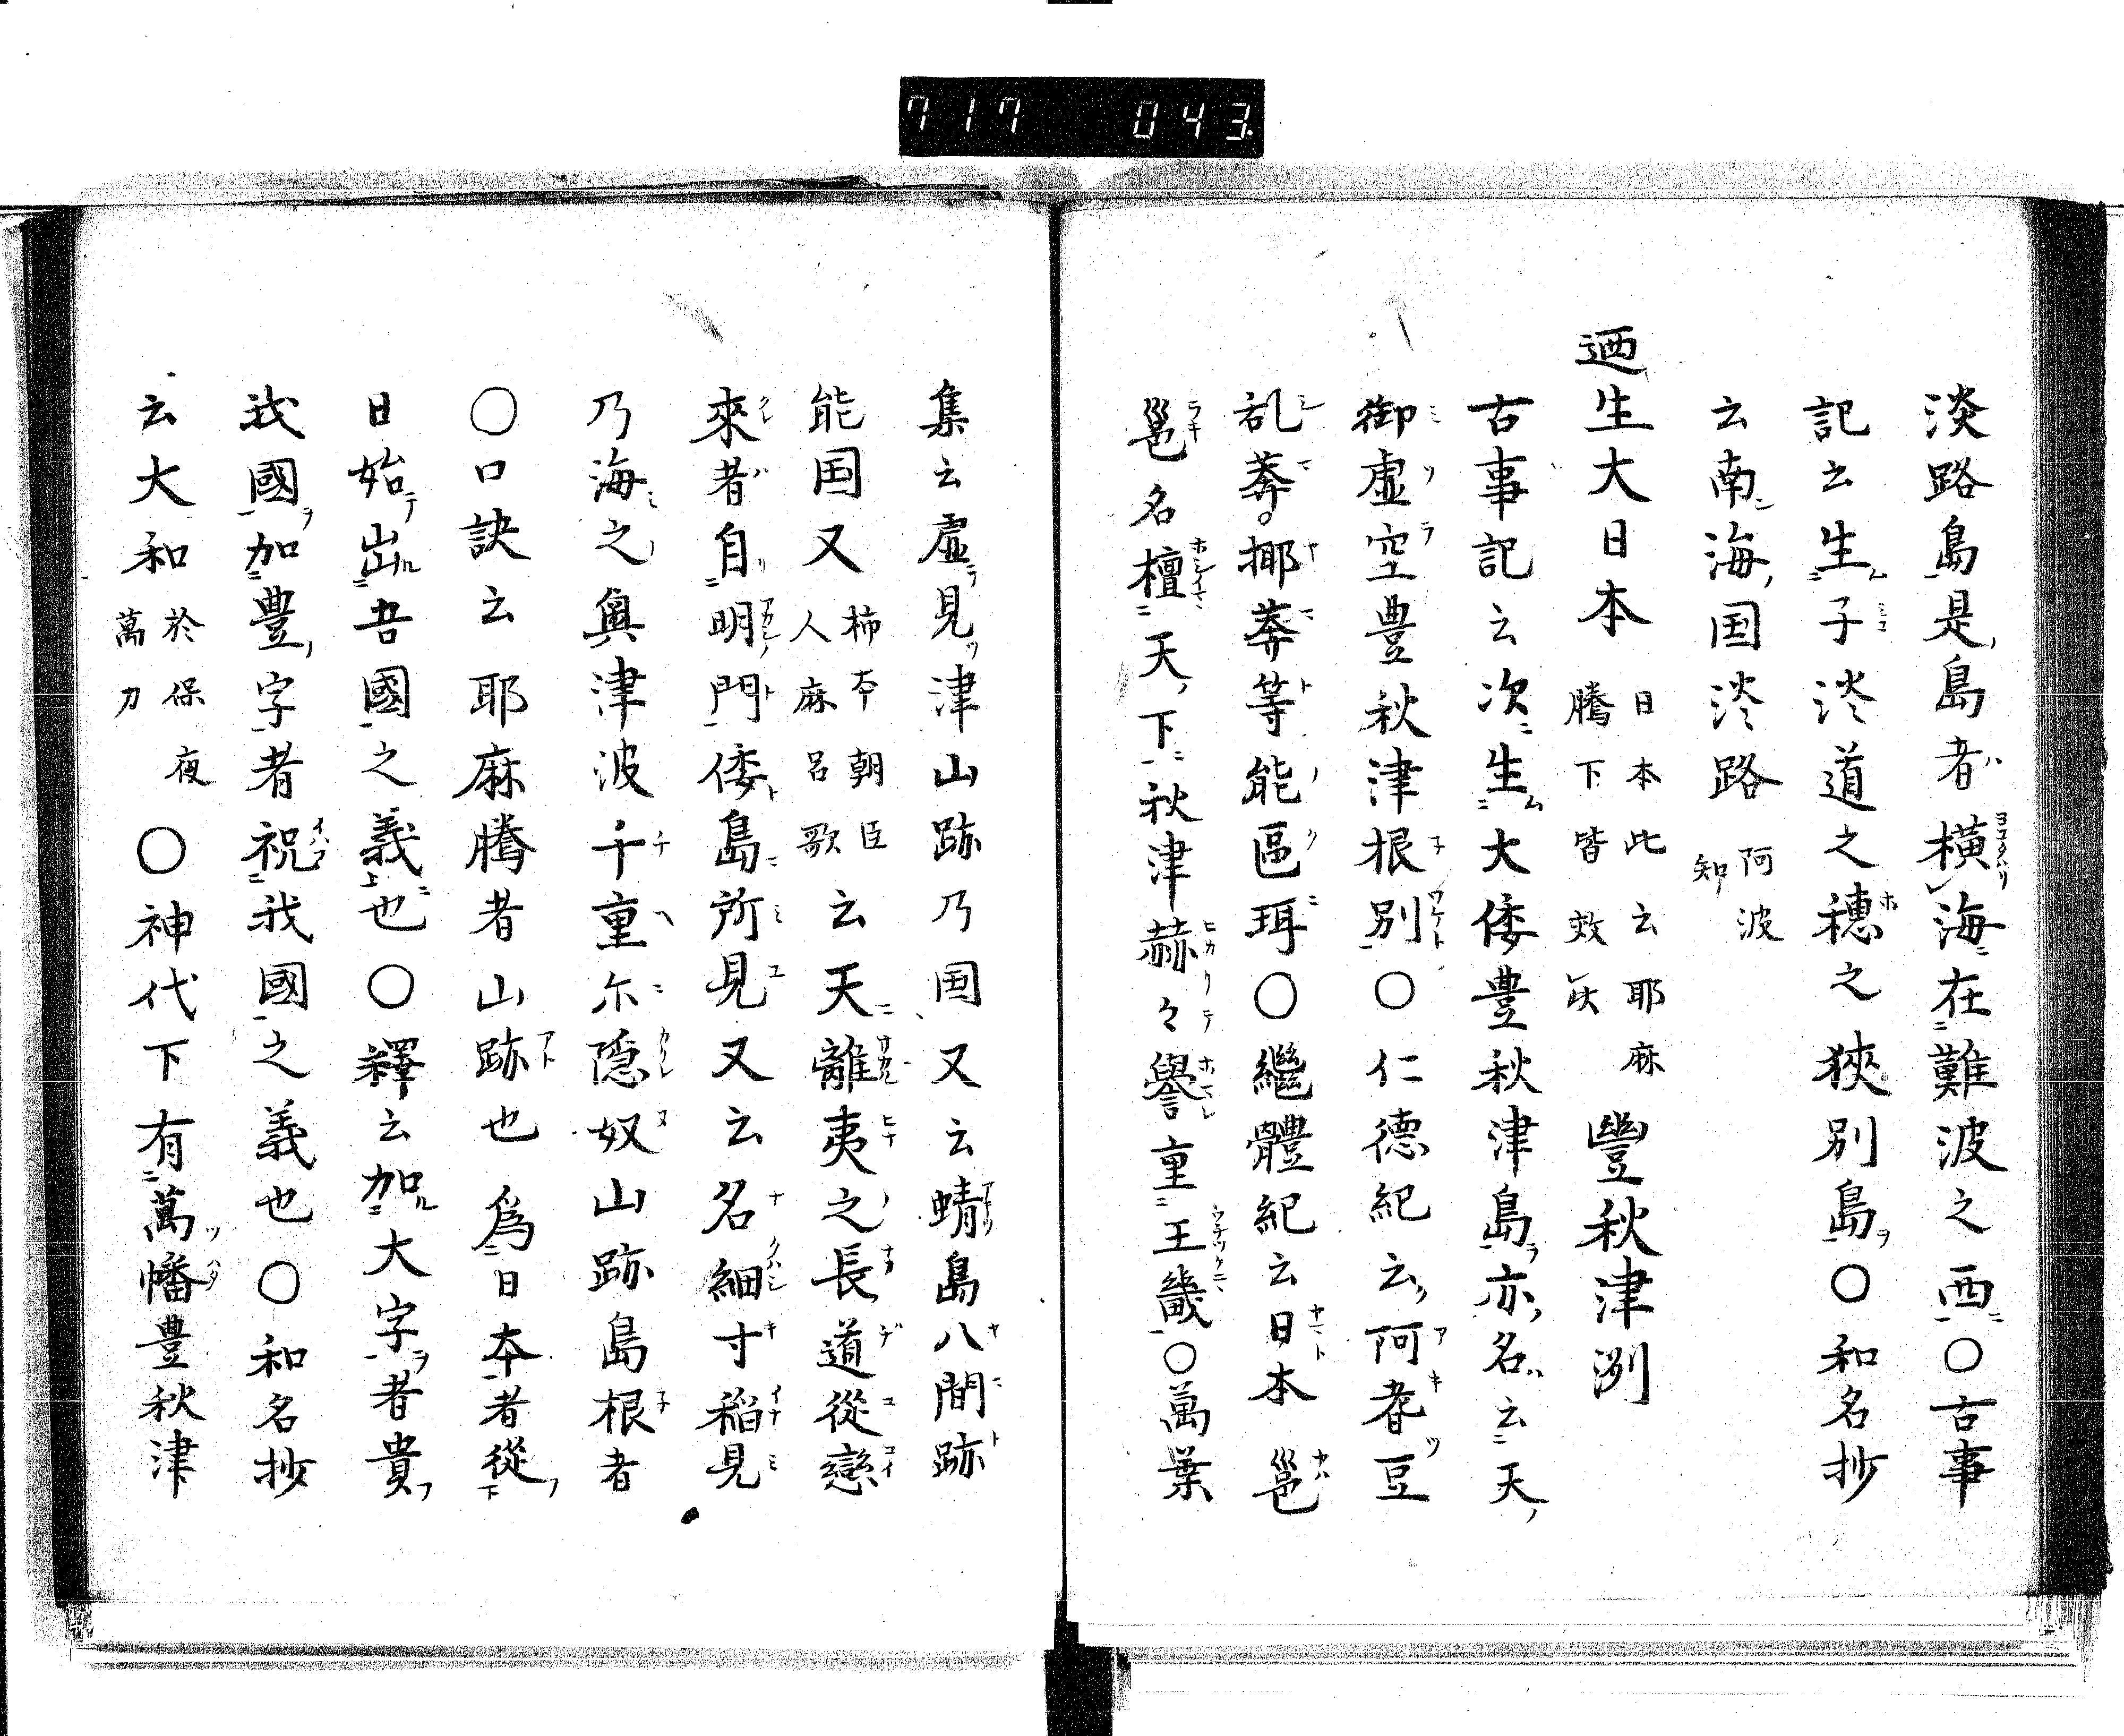 717 043
淡路島是島者横海在難波之西〇古事
記云生子淡道之穗之狹別島〇和名抄
云南海国淡路阿波知
迺生大日本日本此云耶麻騰下皆效此豐秋津洲
古事記云次生大倭豊秋津島亦名云天
御虛空豊秋津根別〇仁德紀云阿耆豆
辭莽揶莽等能區珥〇繼體紀云日本邕
邕名檀天下秋津赫々譽重王畿〇萬葉
集云虛見津山跡乃国又云蜻島八間跡
能国又柿夲朝臣人麻呂歌云天離夷之長道從戀
來者自明門倭島所見又云名細寸稲見
乃海之奥津波千重尓隠奴山跡島根者
〇口訣云耶麻騰者山跡也爲日夲者從
日始出吾國之義也〇釋云加大字者貴
我國加豊字者祝我國之義也〇和名抄
云大和於保夜萬刀〇神代下有萬幡豊秋津